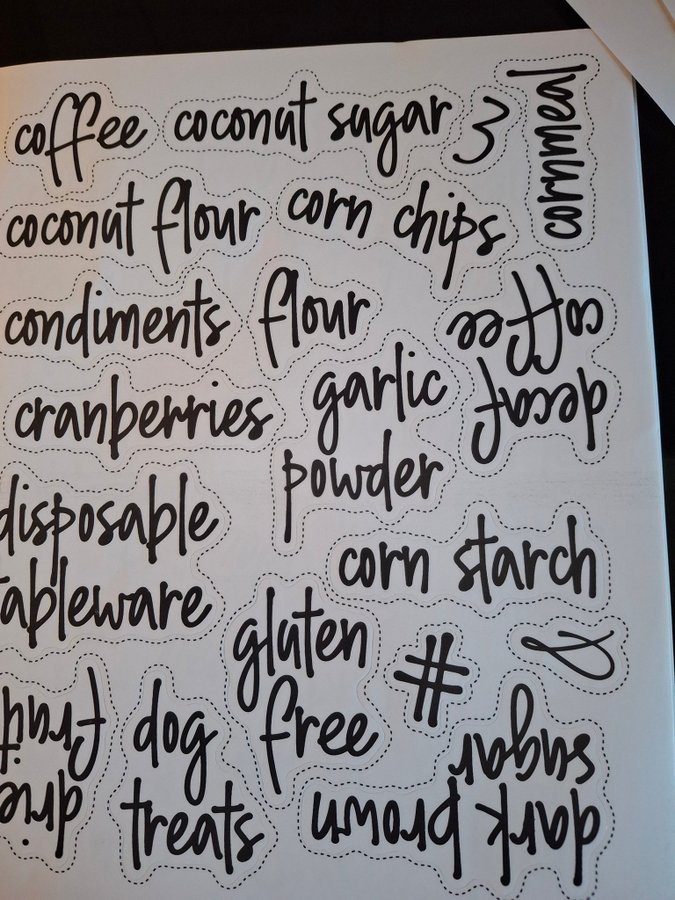 coffee
coconut sugar
3
cornmeal
coconut flour
corn chips
condiments
flour
decaf
coffee
cranberries
garlic
powder
disposable
tableware
corn starch
gluten
free
#
&
dried
fruit
dog
treats
dark brown
sugar